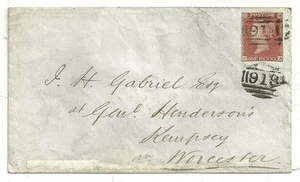 J. H. Gabriel Esq
at Genl. Henderson's
Kempsey
nr Worcester.
918
ONE PENNY